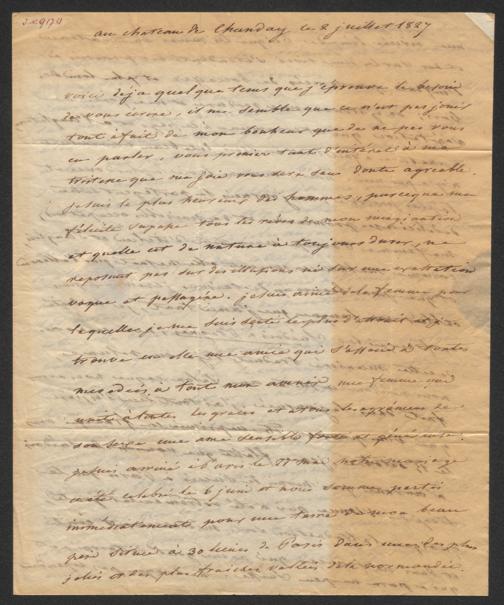 au chateau de Chanday le 2 juillet 1827
voici deja quelque tems que j'eprouve le besoin
de vous ecrire, il me semble que ce n'est pas jouir
tout a fait de mon bonheur que de ne pas vous
en parler, vous preniez tant d'interet à ma
tristesse que ma joie vous sera sans doute agreable.
je suis le plus heureux des hommes, parceque ma
félicité surpasse tous les rèves de mon imagination
et quelle est de nature a toujours durer, ne
reposant pas sur des illusions ni sur une exaltation
vague et passagère. je suis aimé de la femme pour
laquelle je me suis senti le plus d'attrait et je
trouve en elle une amie que s'associe à toutes
mes idées, à tout mon avenir, ma femme
unit a toutes les graces et a tous les agrémens de
son sexe une ame sensible forte et généreuse.
je suis arrivé a Paris le 17 mai notre mariage
a été celebré le 6 juin et nous sommes partis
immediatement pour une terre de mon beau
père située à 30 lieues de Paris dans une des plus
jolies et des plus fraiches vallées de la normandie.